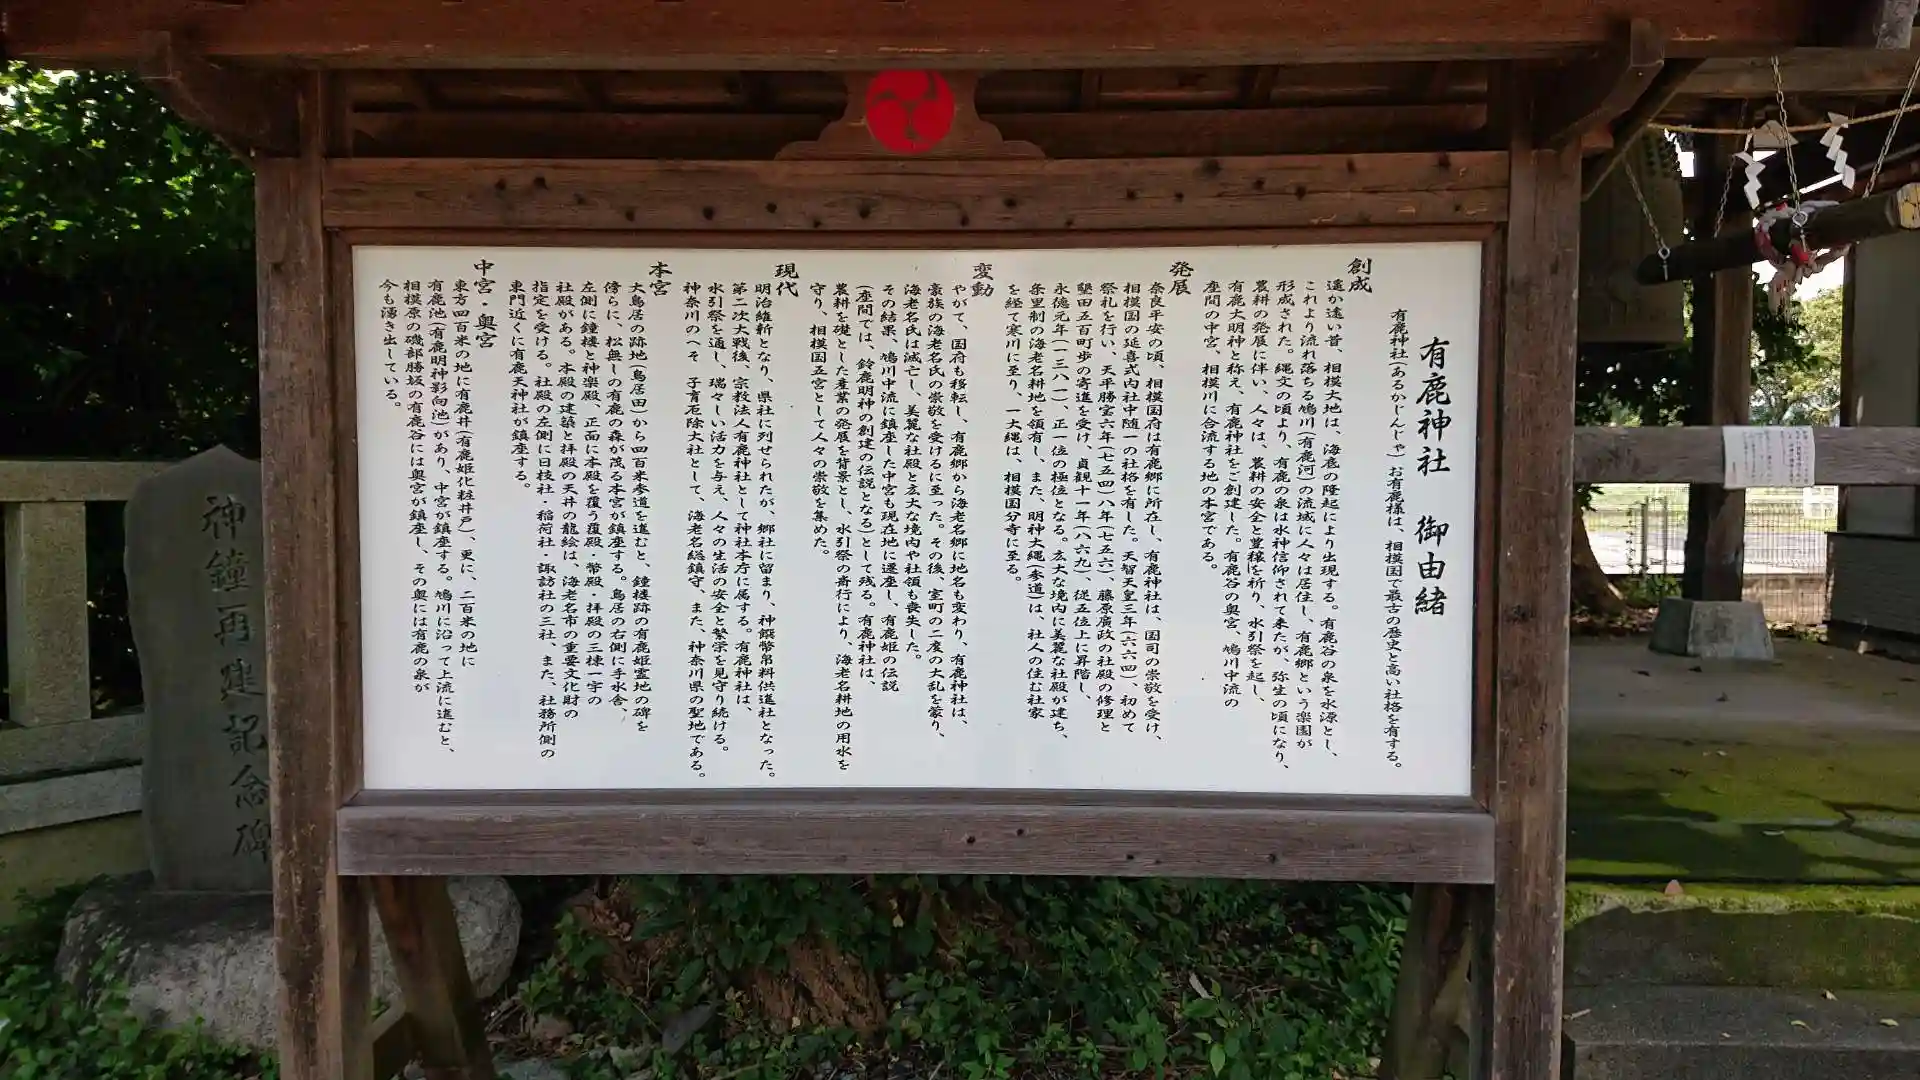 有鹿神社 御由緒
有鹿神社(あるかじんじゃ)お有鹿様は、相模国で最古の歴史と高い社格を有する。
創成
遙か遠い昔、相模大地は、海底の隆起により出現する。有鹿谷の泉を水源とし、
これより流れ落ちる鳩川(有鹿河)の流域に人々は居住し、有鹿郷という楽園が
形成された。縄文の頃より、有鹿の泉は水神信仰されて来たが、弥生の頃になり、
農耕の発展に伴い、人々は、農耕の安全と豊穣を祈り、水引祭を起し、
有鹿大明神と称え、有鹿神社をご創建した。有鹿谷の奥宮、鳩川中流の
座間の中宮、相模川に合流する地の本宮である。
発展
奈良平安の頃、相模国府は有鹿郷に所在し、有鹿神社は、国司の崇敬を受け、
相模国の延喜式内社中随一の社格を有した。天智天皇三年(六六四)、初めて
祭礼を行い、天平勝宝六年(七五四)八年(七五六)、藤原廣政の社殿の修理と
墾田五百町歩の寄進を受け、貞観十一年(八六九)、従五位上に昇階し、
永徳元年(一三八一)、正一位の極位となる。広大な境内に美麗な社殿が建ち、
条里制の海老名耕地を領有し、また、明神大縄(参道)は、社人の住む社家
を経て寒川に至り、一大縄は、相模国分寺に至る。
変動
やがて、国府も移転し、有鹿郷から海老名郷に地名も変わり、有鹿神社は、
豪族の海老名氏の崇敬を受けるに至った。その後、室町の二度の大乱を蒙り、
海老名氏は滅亡し、美麗な社殿と広大な境内や社領も喪失した。
その結果、鳩川中流に鎮座した中宮も現在地に遷座し、有鹿姫の伝説
(座間では、鈴鹿明神の創建の伝説となる)として残る。有鹿神社は、
農耕を礎とした産業の発展を背景とし、水引祭の斎行により、海老名耕地の用水を
守り、相模国五宮として人々の崇敬を集めた。
現代
明治維新となり、県社に列せられたが、郷社に留まり、神饌幣帛料供進社となった。
第二次大戦後、宗教法人有鹿神社として神社本庁に属する。有鹿神社は、
水引祭を通し、瑞々しい活力を与え、人々の生活の安全と繁栄を見守り続ける。
神奈川のへそ 子育石除大社として、海老名総鎮守、また、神奈川県の聖地である。
本宮
大鳥居の跡地(鳥居田)から四百米参道を進むと、鐘楼跡の有鹿姫霊地の碑を
傍らに、松無しの有鹿の森が茂る本宮が鎮座する。鳥居の右側に手水舎、
左側に鐘楼と神楽殿、正面に本殿を覆う覆殿・幣殿・拝殿の三棟一宇の
社殿がある。本殿の建築と拝殿の天井の龍絵は、海老名市の重要文化財の
指定を受ける。社殿の左側に日枝社・稲荷社・諏訪社の三社、また、社務所側の
東門近くに有鹿天神社が鎮座する。
中宮・奥宮
東方四百米の地に有鹿井(有鹿姫化粧井戸)、更に、二百米の地に
有鹿池(有鹿明神影向池)があり、中宮が鎮座する。鳩川に沿って上流に進むと、
相模原の磯部勝坂の有鹿谷には奥宮が鎮座し、その奥には有鹿の泉が
今も湧き出している。
神鐘再建記念碑